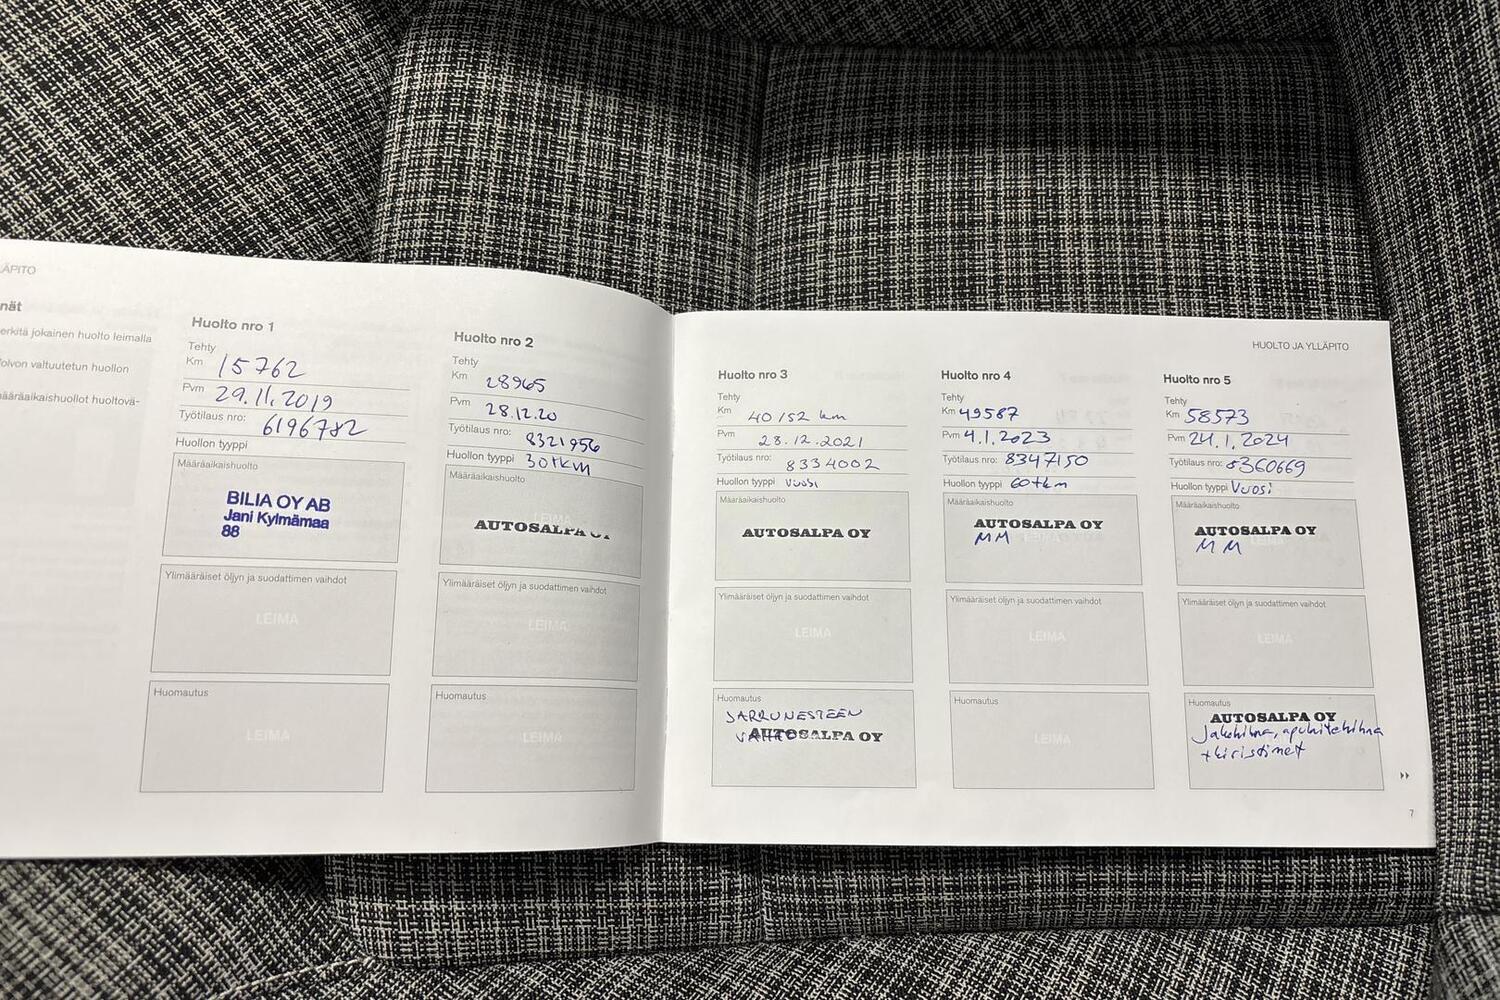 LÄPITO
nät
erkitä jokainen huolto leimalla
olvon valtuutetun huollon
ääräaikaishuollot huoltovä-
Huolto nro 1
Tehty
Km 15762
Pvm 29.11.2019
Työtilaus nro: 6196782
Huollon tyyppi
Määräaikaishuolto
BILIA OY AB
Jani Kylmämaa
88
Ylimääräiset öljyn ja suodattimen vaihdot
LEIMA
Huomautus
LEIMA
Huolto nro 2
Tehty
Km 28965
Pvm 28.12.20
Työtilaus nro: 8321956
Huollon tyyppi 30tkm
Määräaikaishuolto
LEIMA
AUTOSALPA OY
Ylimääräiset öljyn ja suodattimen vaihdot
LEIMA
Huomautus
LEIMA
HUOLTO JA YLLÄPITO
Huolto nro 3
Tehty
Km 40152 km
Pvm 28.12.2021
Työtilaus nro: 8334002
Huollon tyyppi Vuosi
Määräaikaishuolto
AUTOSALPA OY
Ylimääräiset öljyn ja suodattimen vaihdot
LEIMA
Huomautus
JARRUNESTEEN
VAIHTO AUTOSALPA OY
Huolto nro 4
Tehty
Km 49587
Pvm 4.1.2023
Työtilaus nro: 8347150
Huollon tyyppi 60tkm
Määräaikaishuolto
AUTOSALPA OY
MM LEIMA
Ylimääräiset öljyn ja suodattimen vaihdot
LEIMA
Huomautus
LEIMA
Huolto nro 5
Tehty
Km 58573
Pvm 24.1.2024
Työtilaus nro: 8360669
Huollon tyyppi Vuosi
Määräaikaishuolto
AUTOSALPA OY
MM LEIMA
Ylimääräiset öljyn ja suodattimen vaihdot
LEIMA
Huomautus
AUTOSALPA OY
Jakohihna, apuhihna
+kiristimet
7